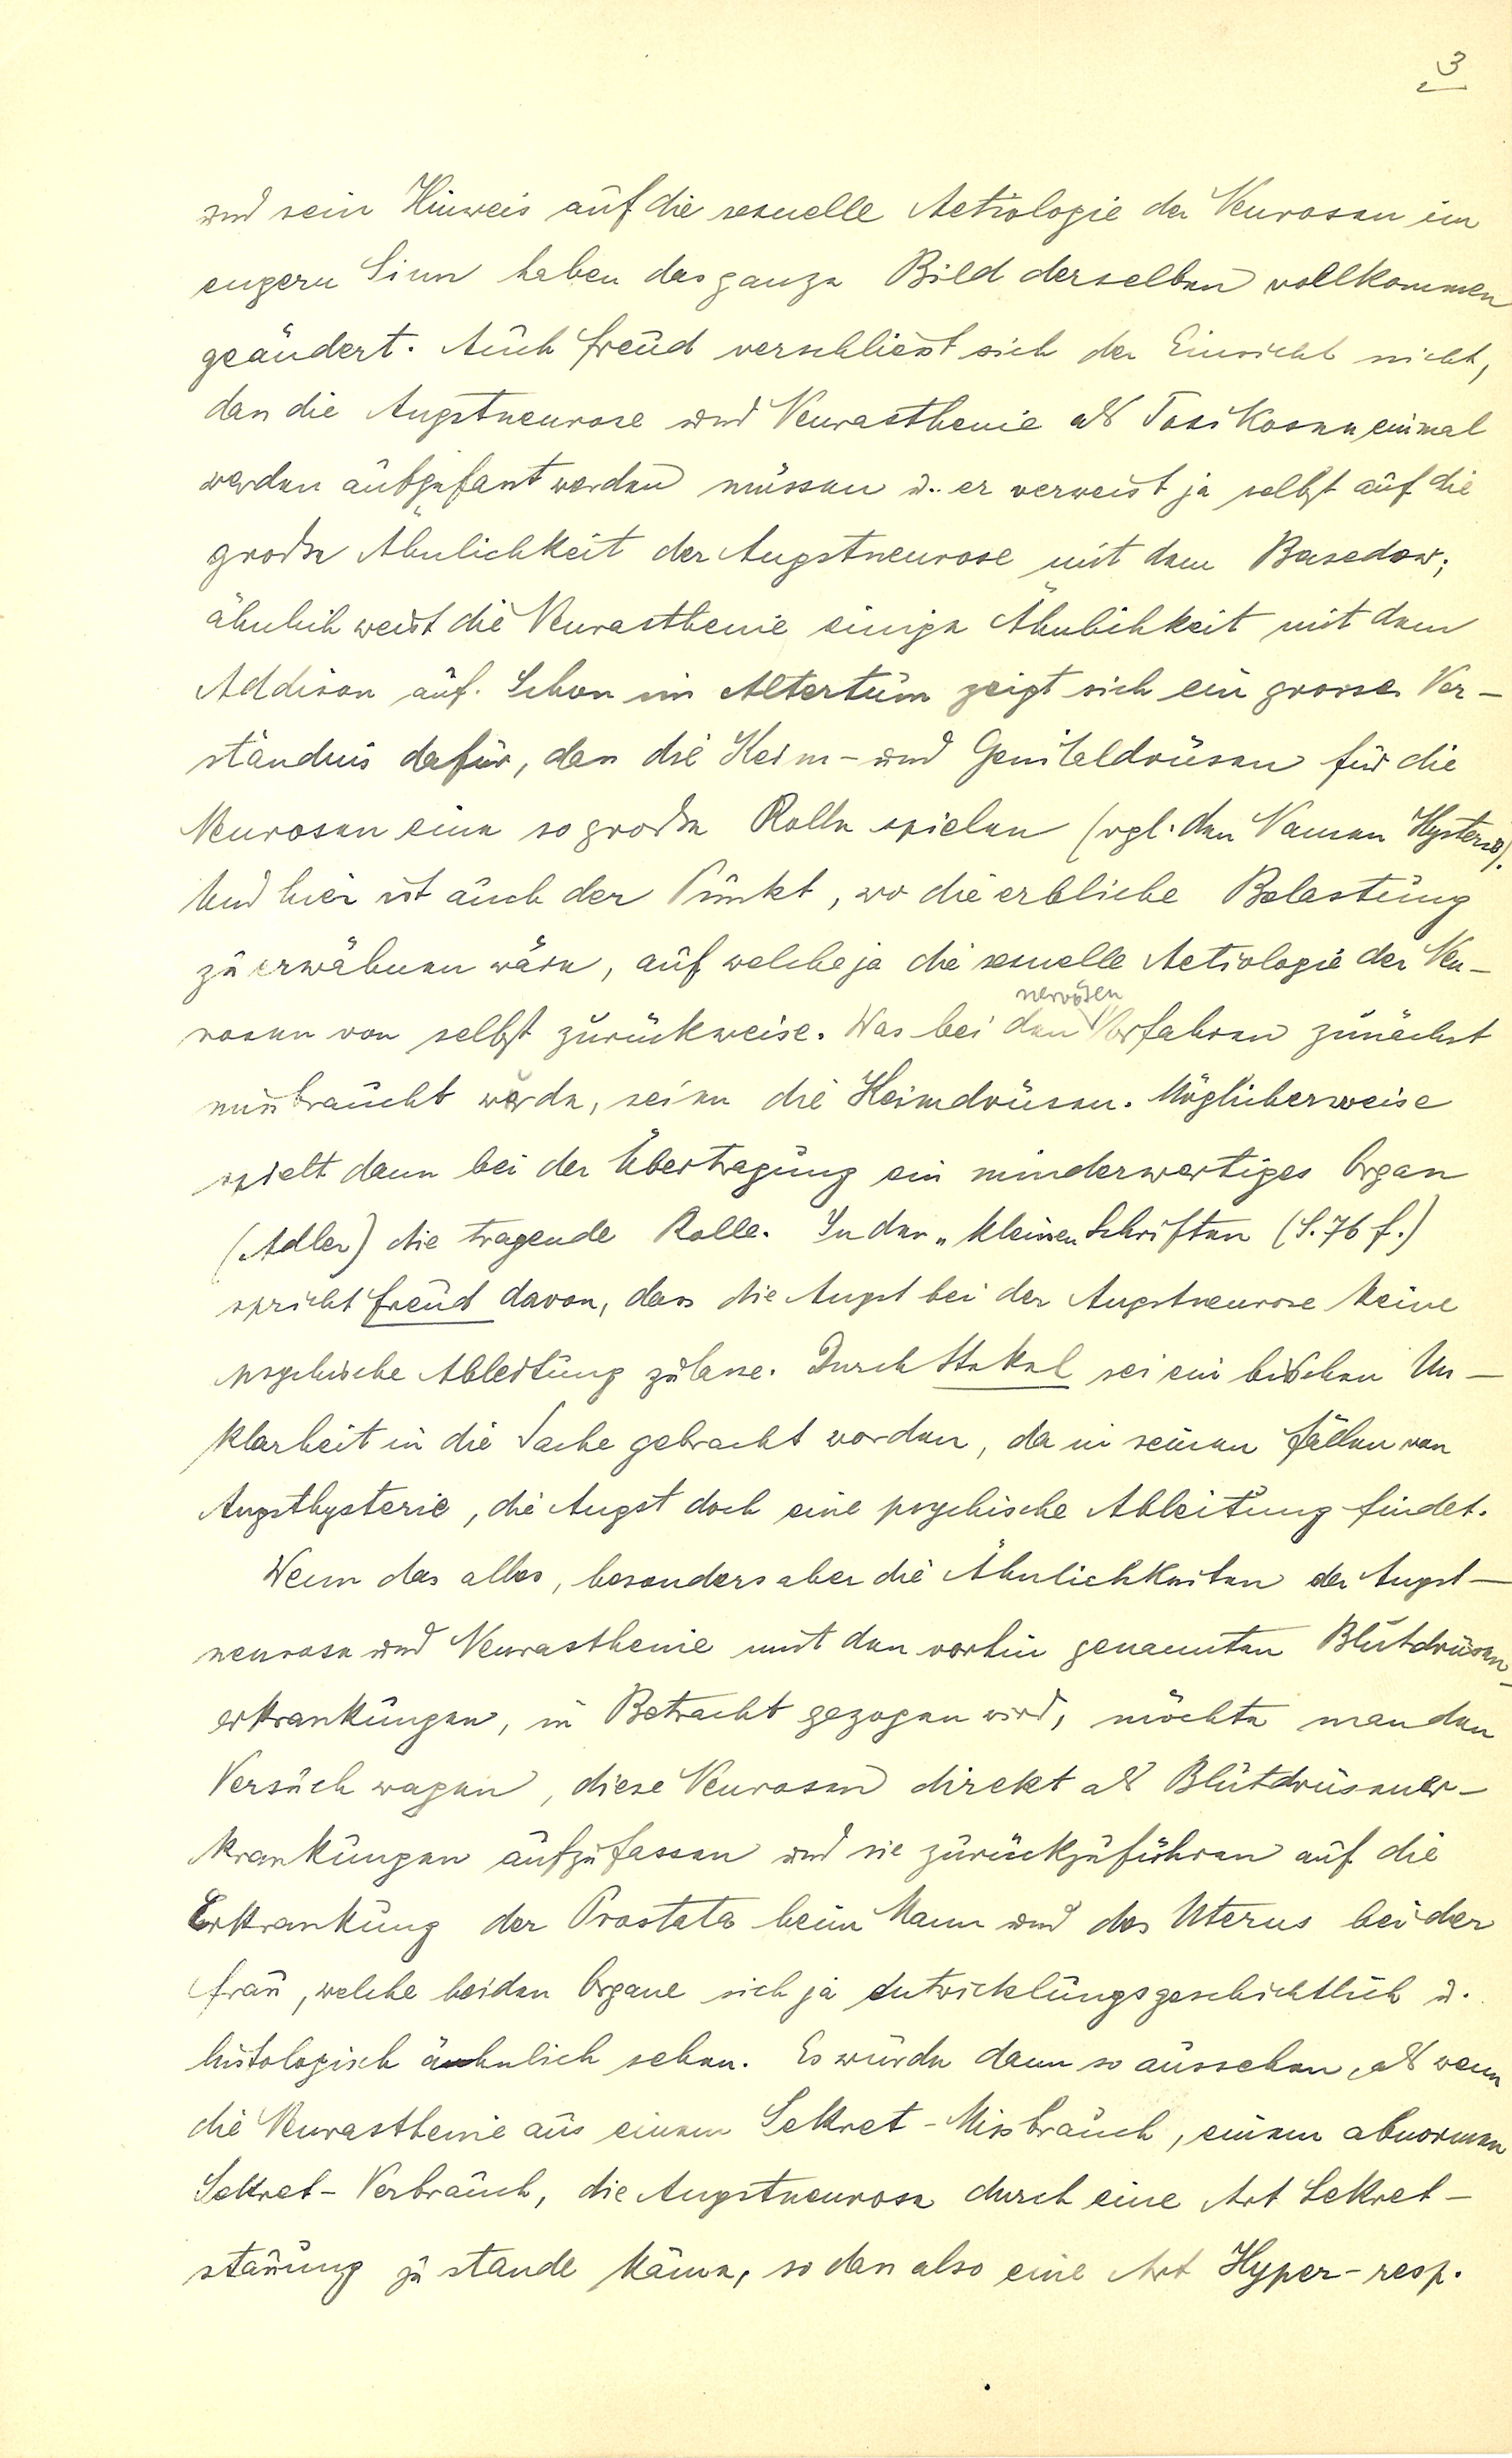 3
und sein Hinweis auf die sexuelle Aetiologie der Neurosen im
engern Sinn haben das ganze Bild derselben vollkommen
geändert. Auch Freud verschliesst sich der Einsicht nicht,
dass die Angstneurose und Neurasthenie als Toxikosen einmal
werden aufgefasst werden müssen u. er verweist ja selbst auf die
große Ähnlichkeit der Angstneurose mit dem Basedow;
ähnlich weist die Neurasthenie einige Ähnlichkeit mit dem
Addison auf. Schon im Altertum zeigt sich ein grosses Ver-
ständnis dafür, dass die Keim- und Genitaldrüsen für die
Neurosen eine so große Rolle spielen (vgl. den Namen Hysterie).
Und hier ist auch der Punkt, wo die erbliche Belastung
zu erwähnen wäre, auf welche ja die sexuelle Aetiologie der Neu-
rosen von selbst zurückweise. Was bei den nervösen Vorfahren zunächst
missbraucht werde, seien die Keimdrüsen. Möglicherweise
spielt dann bei der Übertragung ein minderwertiges Organ
(Adler) die tragende Rolle. In den „kleinen Schriften (S. 76 f.)
spricht Freud davon, dass die Angst bei der Angstneurose keine
psychische Ableitung zulasse. Durch Stekel sei ein bißchen Un-
klarheit in die Sache gebracht worden, da in seinen Fällen von
Angsthysterie, die Angst doch eine psychische Ableitung findet.
Wenn das alles, besonders aber die Ähnlichkeiten der Angst-
neurose und Neurasthenie mit den vorhin genannten Blutdrüsen-
erkrankungen, in Betracht gezogen wird, möchte man den
Versuch wagen, diese Neurosen direkt als Blutdrüsener-
krankungen aufzufassen und sie zurückzuführen auf die
Erkrankung der Prostata beim Mann und des Uterus bei der
Frau, welche beiden Organe sich ja entwicklungsgeschichtlich u.
histologisch ähnlich sehen. Es würde dann so aussehen, als wenn
die Neurasthenie aus einem Sekret-Missbrauch, einem abnormen
Sekret-Verbrauch, die Angstneurose durch eine Art Sekret-
stauung zu stande käme, so dass also eine Art Hyper- resp.